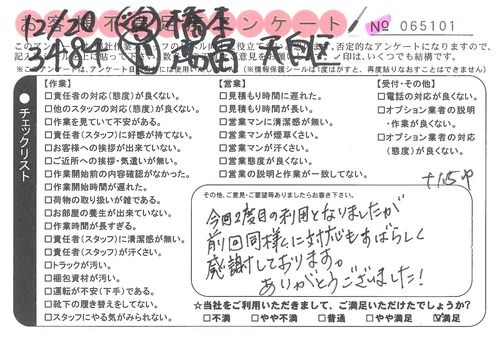 お客様不満足度アンケート
No 065101
12/20
3484
□責任者の対応(態度)が良くない。
□他のスタッフの対応(態度)が良くない。
□作業を見ていて不安がある。
□責任者(スタッフ)に好感が持てない。
□お客様への挨拶が出来ていない。
□ご近所への挨拶・気遣いが無い。
□作業開始前の内容確認がなかった。
□作業開始時間が遅れた。
□荷物の取り扱いが雑である。
□お部屋の養生が出来ていない。
□作業時間が長すぎる。
□責任者(スタッフ)に清潔感が無い。
□責任者(スタッフ)が汗くさい。
□トラックが汚い。
□梱包資材が汚い。
□運転が不安(下手)である。
□靴下の履き替えをしてない。
□スタッフにやる気がみられない。
【作業】
チェックリスト
【営業】
□見積もり時間に遅れた。
□見積もり時間が長い。
□営業マンに清潔感が無い。
□営業マンが煙草くさい。
□営業マンが汗くさい。
□営業態度が良くない。
□営業の説明と作業が一致してない。
【受付・その他】
□電話の対応が良くない。
□オプション業者の説明
・作業が良くない。
□オプション業者の対応
(態度)が良くない。
その他、ご意見・ご要望等ありましたらお書き下さい。
今回2度目の利用となりましたが
前回同様に対応もすばらしく
感謝しております。
ありがとうございました!
☆当社をご利用いただきまして、ご満足いただけたでしょうか?
□不満 □やや不満 □普通 □やや満足 ☑満足